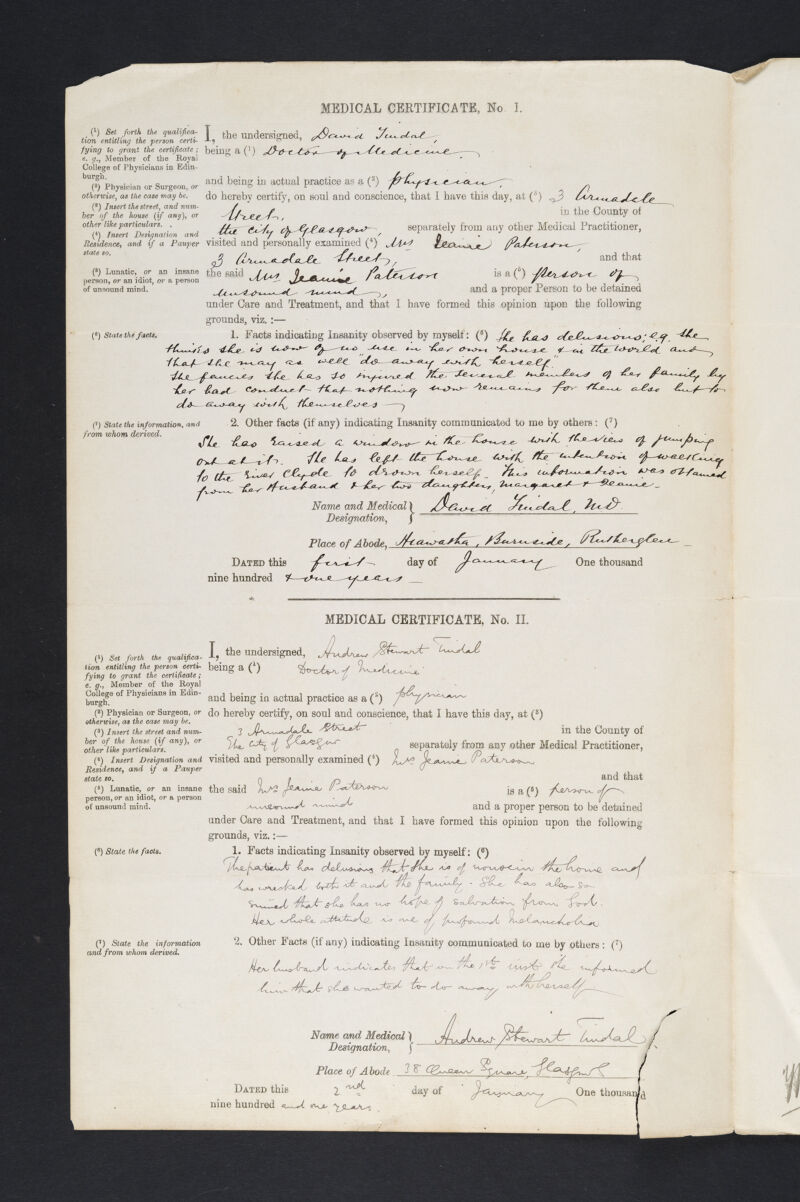 MEDICAL CERTIFICATE, No. I.
(¹) Set forth the qualifica-
tion entitling the person certi-
fying to grant the certificate;
e. g., Member of the Royal
College of Physicians in Edin-
burgh.
(²) Physician or Surgeon, or
otherwise, as the case may be.
(³) Insert the street, and num-
ber of the house (if any), or
other like particulars.
(⁴) Insert Designation and
Residence, and if a Pauper
state so.
(⁵) Lunatic, or an insane
person, or an idiot, or a person
of unsound mind.
I, the undersigned, David Tindal,
being a (¹) Doctor of Medicine
and being in actual practice as a (²) physician,
do hereby certify, on soul and conscience, that I have this day, at (³) 3 Armadale
Street, in the County of
the city of Glasgow, separately from any other Medical Practitioner,
visited and personally examined (⁴) Mrs Jeanie Paterson,
3 Armadale Street, and that
the said Mrs Jeanie Paterson is a (⁵) person of
unsound mind, and a proper Person to be detained
under Care and Treatment, and that I have formed this opinion upon the following
grounds, viz.:—
(⁶) State the facts.
1. Facts indicating Insanity observed by myself: (⁶) She has delusions; e.g. she
thinks she is now of no use in her own house & in the world and
that she may as well "do away with herself"
She fancies she has so injured the several members of her family by
her bad conduct that nothing now remains for them also but to
do away with themselves
(⁷) State the information, and
from whom derived.
2. Other facts (if any) indicating Insanity communicated to me by others: (⁷)
She has raised a window in the house with the view of jumping
out at it. She has left the house with the intention of walking
to the River Clyde to drown herself. This information was obtained
from her Husband & her two daughters, Margaret & Jeanie.
Name and Medical Designation, David Tindal, M.D.
Place of Abode, Hiawatha, Burnside, Rutherglen
DATED this first day of January One thousand
nine hundred & one years
MEDICAL CERTIFICATE, No. II.
(¹) Set forth the qualifica-
tion entitling the person certi-
fying to grant the certificate;
e. g., Member of the Royal
College of Physicians in Edin-
burgh.
(²) Physician or Surgeon, or
otherwise, as the case may be.
(³) Insert the street and num-
ber of the house (if any), or
other like particulars.
(⁴) Insert Designation and
Residence, and if a Pauper
state so.
(⁵) Lunatic, or an insane
person, or an idiot, or a person
of unsound mind.
I, the undersigned, Andrew Stewart Tindal
being a (¹) Doctor of Medicine
and being in actual practice as a (²) physician
do hereby certify, on soul and conscience, that I have this day, at (³)
3 Armadale Street in the County of
The City of Glasgow separately from any other Medical Practitioner,
visited and personally examined (⁴) Mrs Jeanie Paterson
and that
the said Mrs Jeanie Paterson is a (⁵) person of
unsound mind and a proper person to be detained
under Care and Treatment, and that I have formed this opinion upon the following
grounds, viz.:—
(⁶) State the facts.
1. Facts indicating Insanity observed by myself: (⁶)
The patient has delusions that she is of no use in the home and
has wrecked both it and the family. She has also so
sinned that she has no hope of salvation from God.
Her whole attitude is one of profound Melancholia
(⁷) State the information
and from whom derived.
2. Other Facts (if any) indicating Insanity communicated to me by others: (⁷)
Her husband indicates that on the 1st inst she informed
him that she wanted to do away with herself
Name and Medical Designation, Andrew Stewart Tindal
Place of Abode 38 Queen Square, Glasgow
DATED this 2nd day of January One thousand
nine hundred and one years.